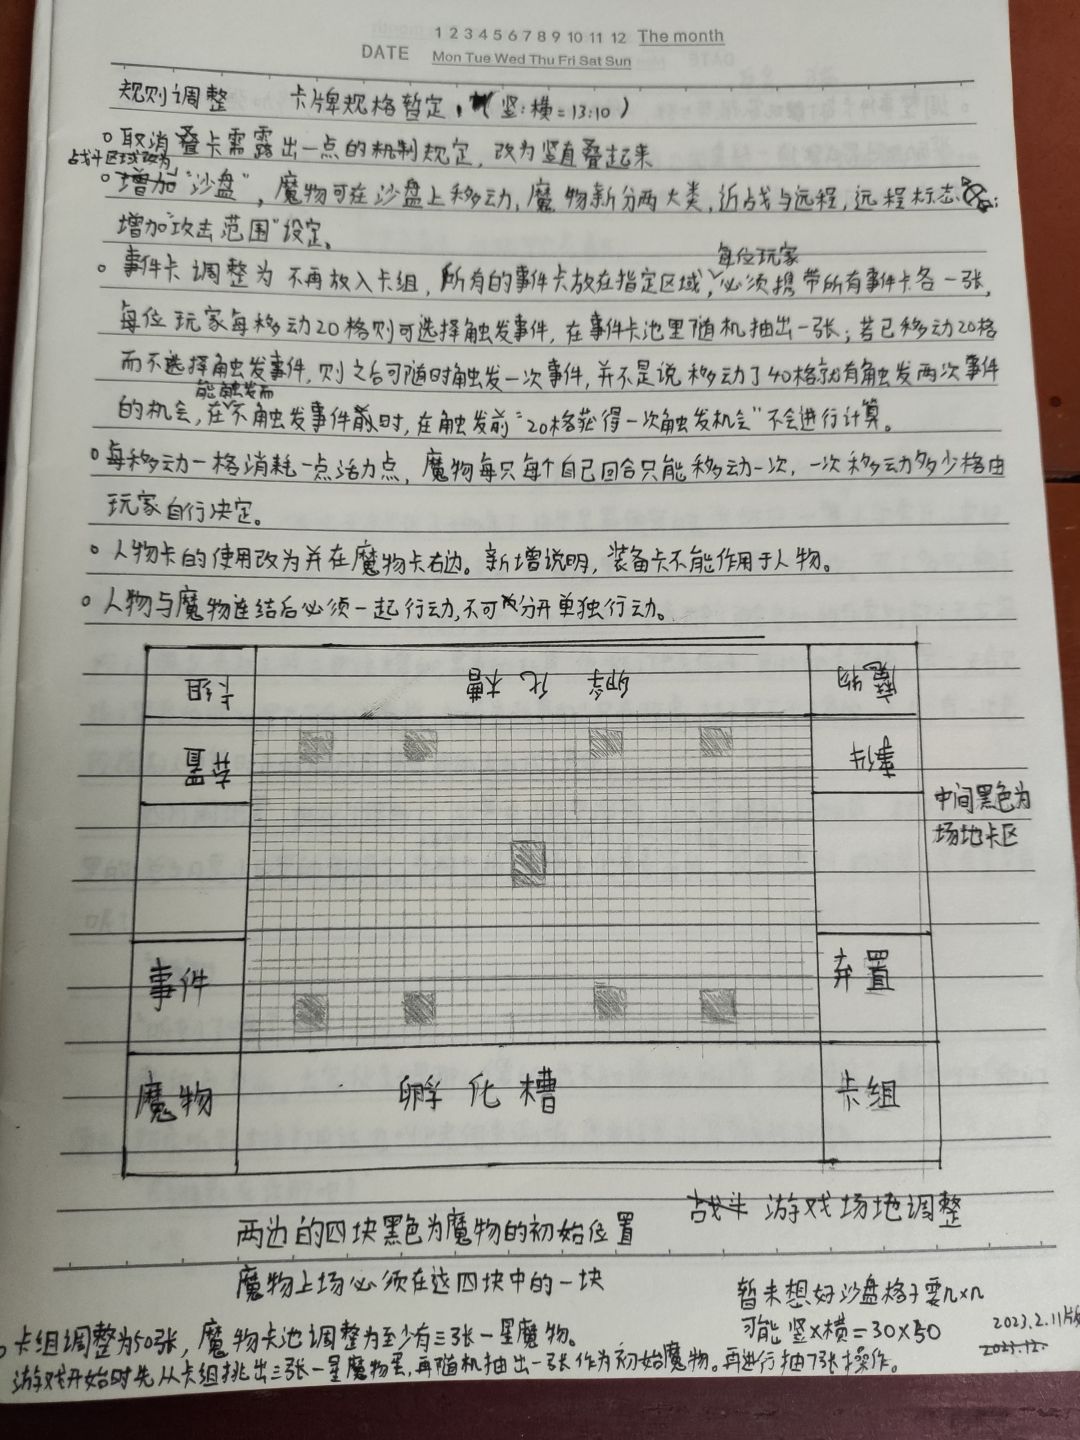 1 2 3 4 5 6 7 8 9 10 11 12 The month
DATE Mon Tue Wed Thu Fri Sat Sun
规则调整 卡牌规格暂定,(竖:横=13:10)
取消叠卡需露出一点的机制规定,改为竖直叠起来
战斗区域改为
增加"沙盘",魔物可在沙盘上移动,魔物新分两大类,近战与远程,远程标志:
增加"攻击范围"设定。
每位玩家
事件卡调整为不再放入卡组,所有的事件卡放在指定区域,必须携带所有事件卡各一张,
每位玩家每移动20格则可选择触发事件,在事件卡池里随机抽出一张;若已移动20格
而不选择触发事件,则之后可随时触发一次事件,并不是说移动了40格就有触发两次事件
能触发而
的机会,在不触发事件时,在触发前"20格获得一次触发机会"不会进行计算。
每移动一格消耗一点活力点,魔物每只每个自己回合只能移动一次,一次移动多少格由
玩家自行决定。
人物卡的使用改为并在魔物卡右边。新增说明,装备卡不能作用于人物。
人物与魔物连结后必须一起行动,不可分开单独行动。
卡组 孵化槽 魔物
弃置 事件
中间黑色为
场地卡区
事件 弃置
魔物 孵化槽 卡组
战斗 游戏场地调整
两边的四块黑色为魔物的初始位置
魔物上场必须在这四块中的一块
暂未想好沙盘格子要n×n
可能竖×横=30×50
2023.2.11版
卡组调整为50张,魔物卡池调整为至少有三张一星魔物。
游戏开始时先从卡组挑出三张一星魔物蛋,再随机抽出一张作为初始魔物。再进行抽7张操作。